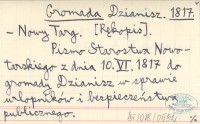 Gromada Dzianisz. 1817.
- Nowy Targ. [Rękopis].
Pismo Starostwa Nowo-
tarskiego z dnia 10.VI. 1817 do
gromady Dzianisz w sprawie
włopników i bezpieczeństwa
publicznego.